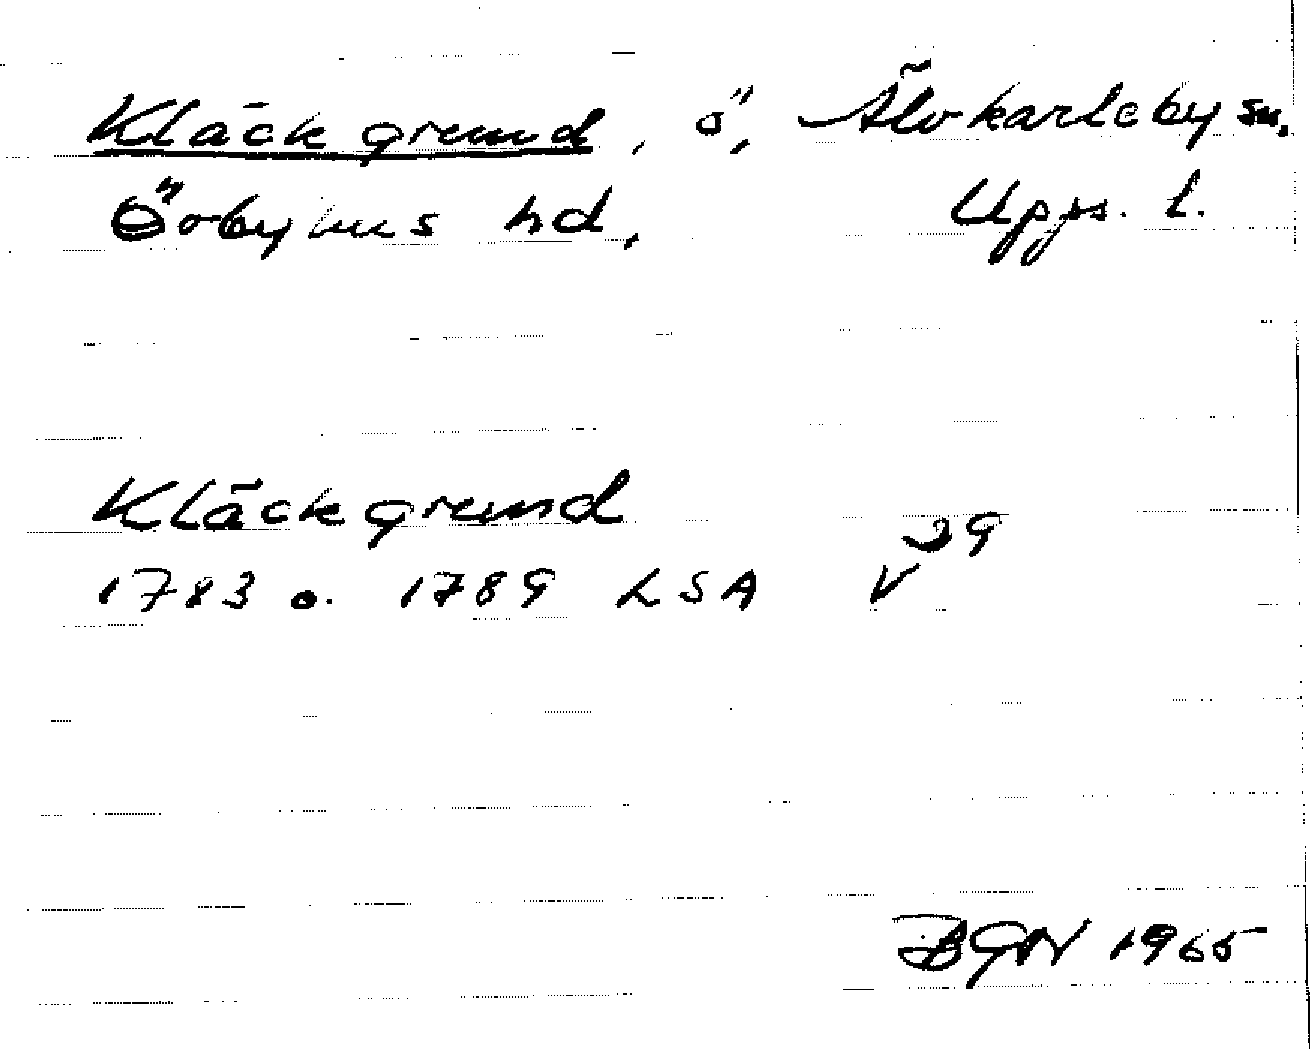 Kläckgrund, ö, Älvkarleby sn.
Örbyhus hd, Upps. l.
Kläckgrund
1783 o. 1789 LSA V 29
BGN 1965